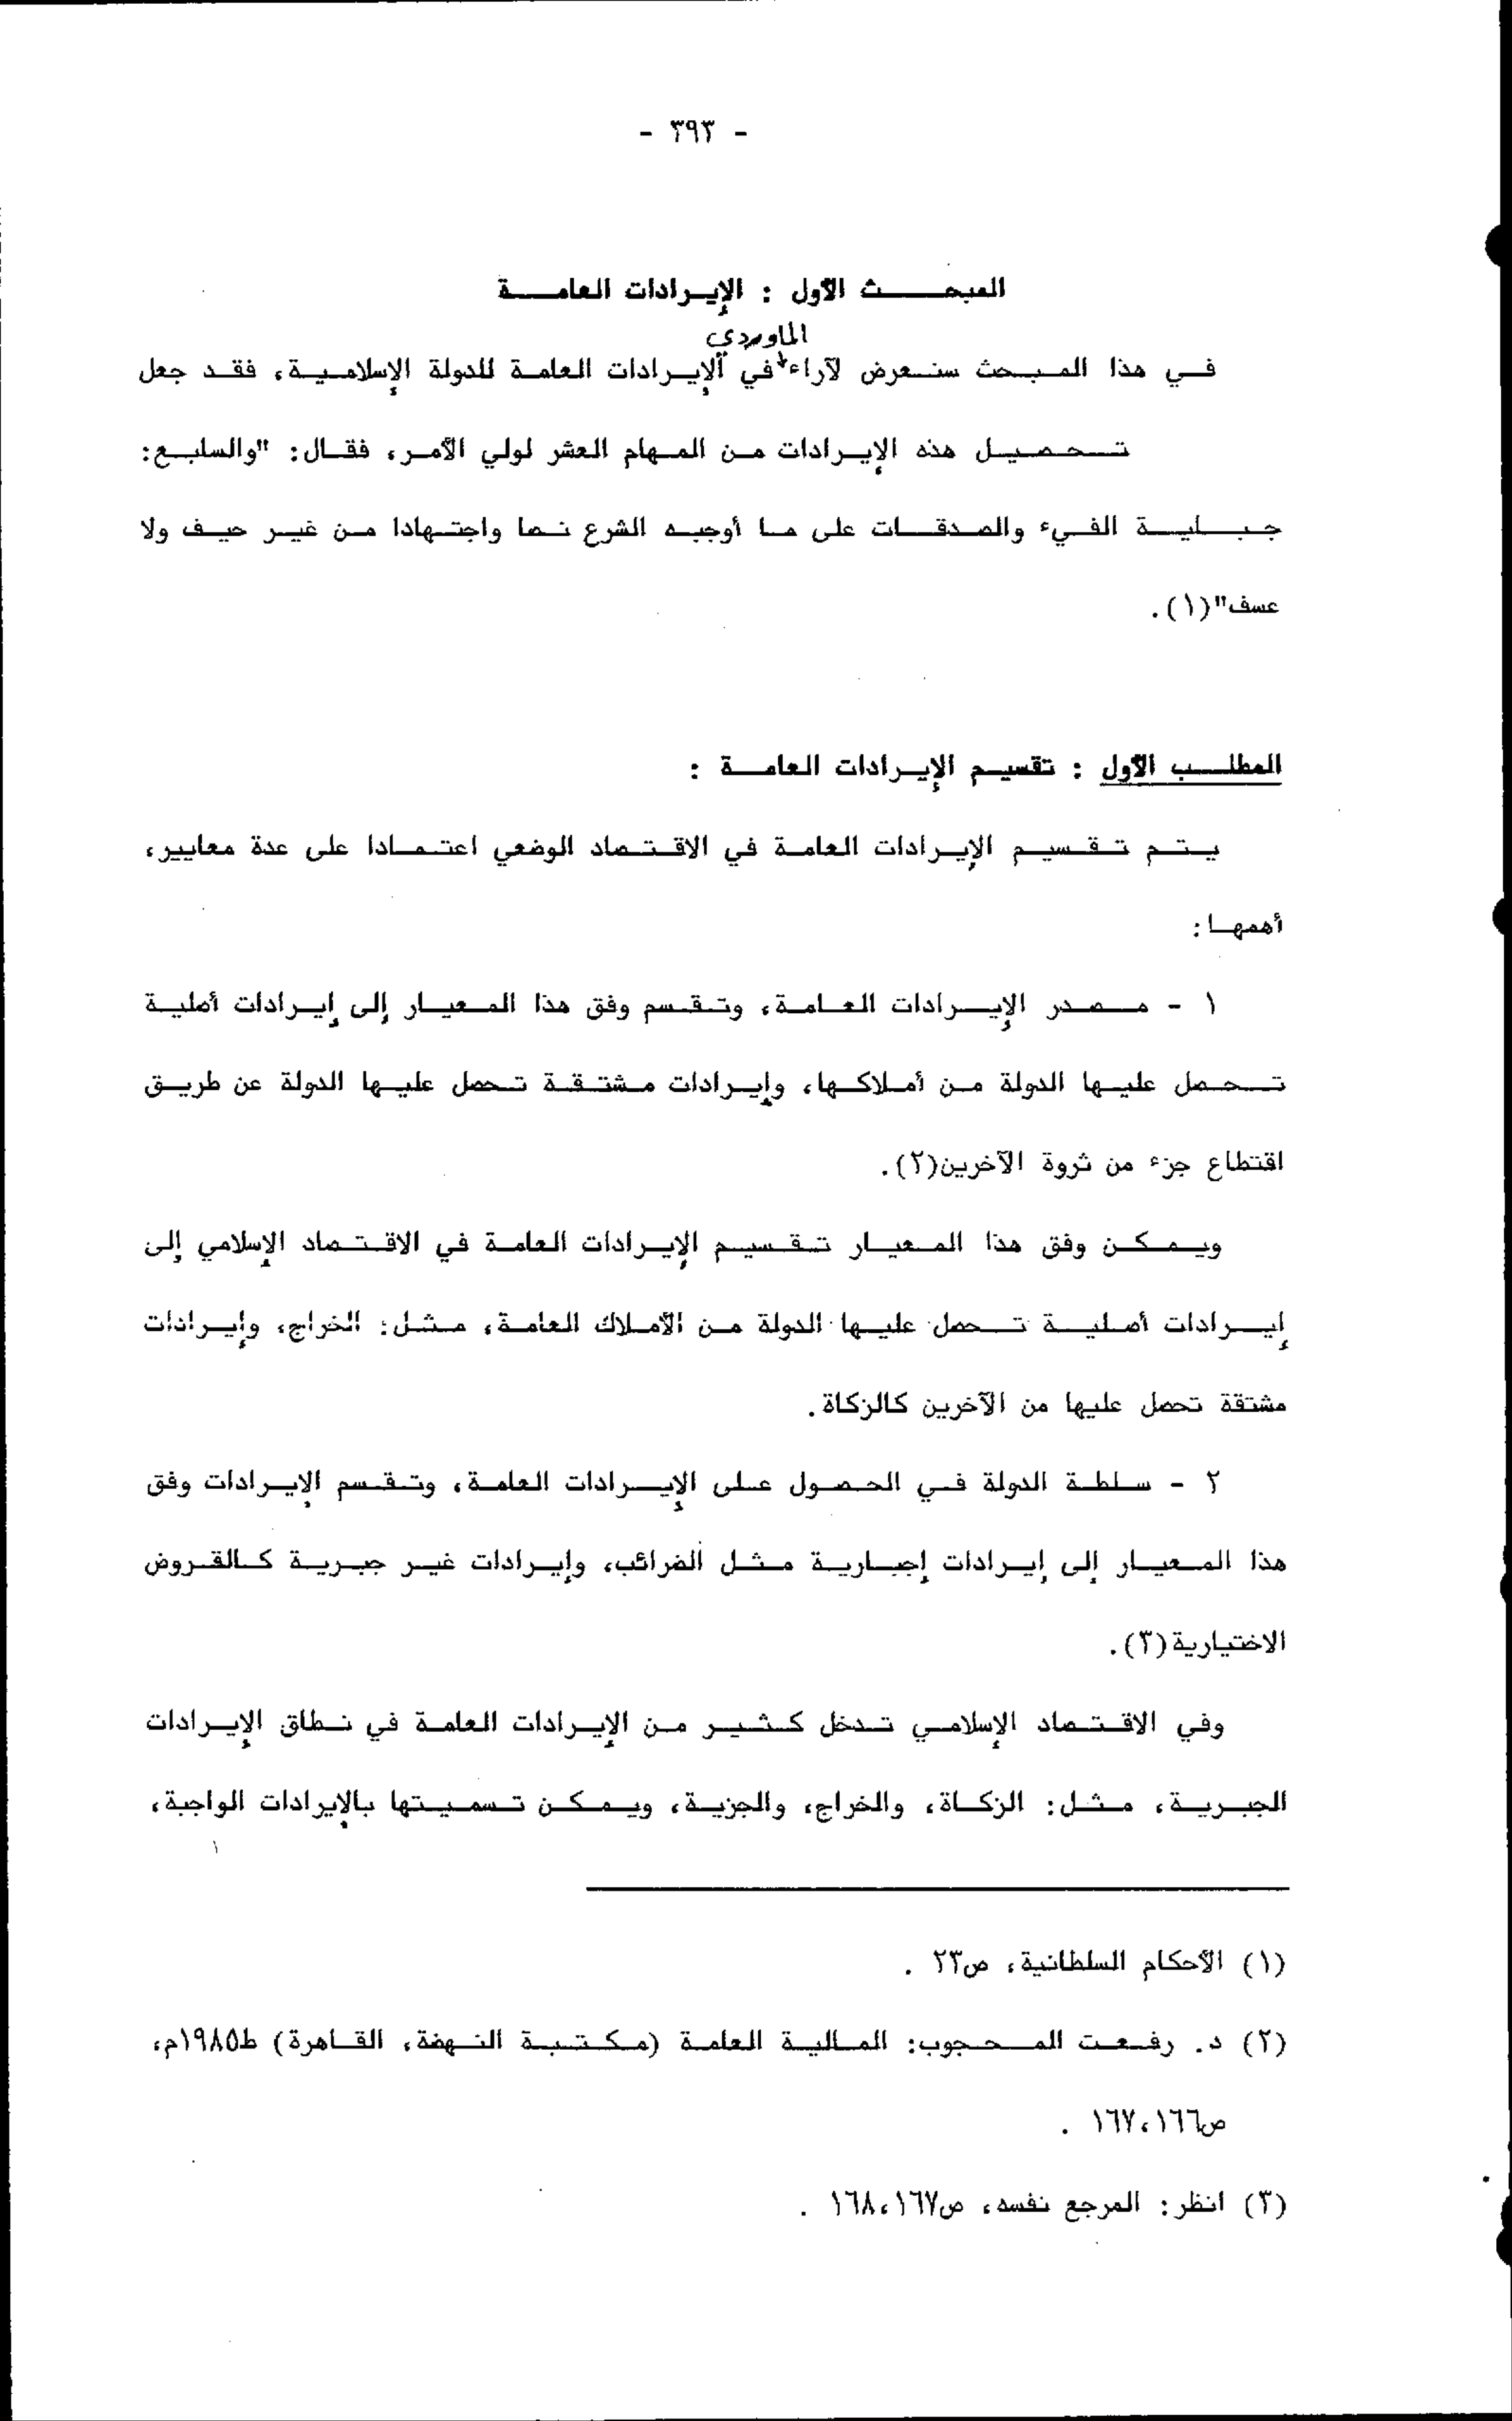 - ٣٩٣ -
المبحث الأول : الإيرادات العامة
الماوردي
في هذا المبحث سنعرض لآراء في الإيرادات العامة للدولة الإسلامية، فقد جعل
تحصيل هذه الإيرادات من المهام العشر لولي الأمر، فقال: "والسابع:
جباية الفيء والصدقات على ما أوجبه الشرع نصا واجتهادا من غير حيف ولا
عسف"(١).
المطلب الأول : تقسيم الإيرادات العامة :
يتم تقسيم الإيرادات العامة في الاقتصاد الوضعي اعتمادا على عدة معايير،
أهمها:
١ - مصدر الإيرادات العامة، وتقسم وفق هذا المعيار إلى إيرادات أصلية
تحصل عليها الدولة من أملاكها، وإيرادات مشتقة تحصل عليها الدولة عن طريق
اقتطاع جزء من ثروة الآخرين(٢).
ويمكن وفق هذا المعيار تقسيم الإيرادات العامة في الاقتصاد الإسلامي إلى
إيرادات أصلية تحصل عليها الدولة من الأملاك العامة، مثل: الخراج، وإيرادات
مشتقة تحصل عليها من الآخرين كالزكاة.
٢ - سلطة الدولة في الحصول على الإيرادات العامة، وتقسم الإيرادات وفق
هذا المعيار إلى إيرادات إجبارية مثل الضرائب، وإيرادات غير جبرية كالقروض
الاختيارية(٣).
وفي الاقتصاد الإسلامي تدخل كثير من الإيرادات العامة في نطاق الإيرادات
الجبرية، مثل: الزكاة، والخراج، والجزية، ويمكن تسميتها بالإيرادات الواجبة،
(١) الأحكام السلطانية، ص٢٣ .
(٢) د. رفعت المحجوب: المالية العامة (مكتبة النهضة، القاهرة) ط١٩٨٥م،
ص١٦٦،١٦٧ .
(٣) انظر: المرجع نفسه، ص١٦٧،١٦٨ .